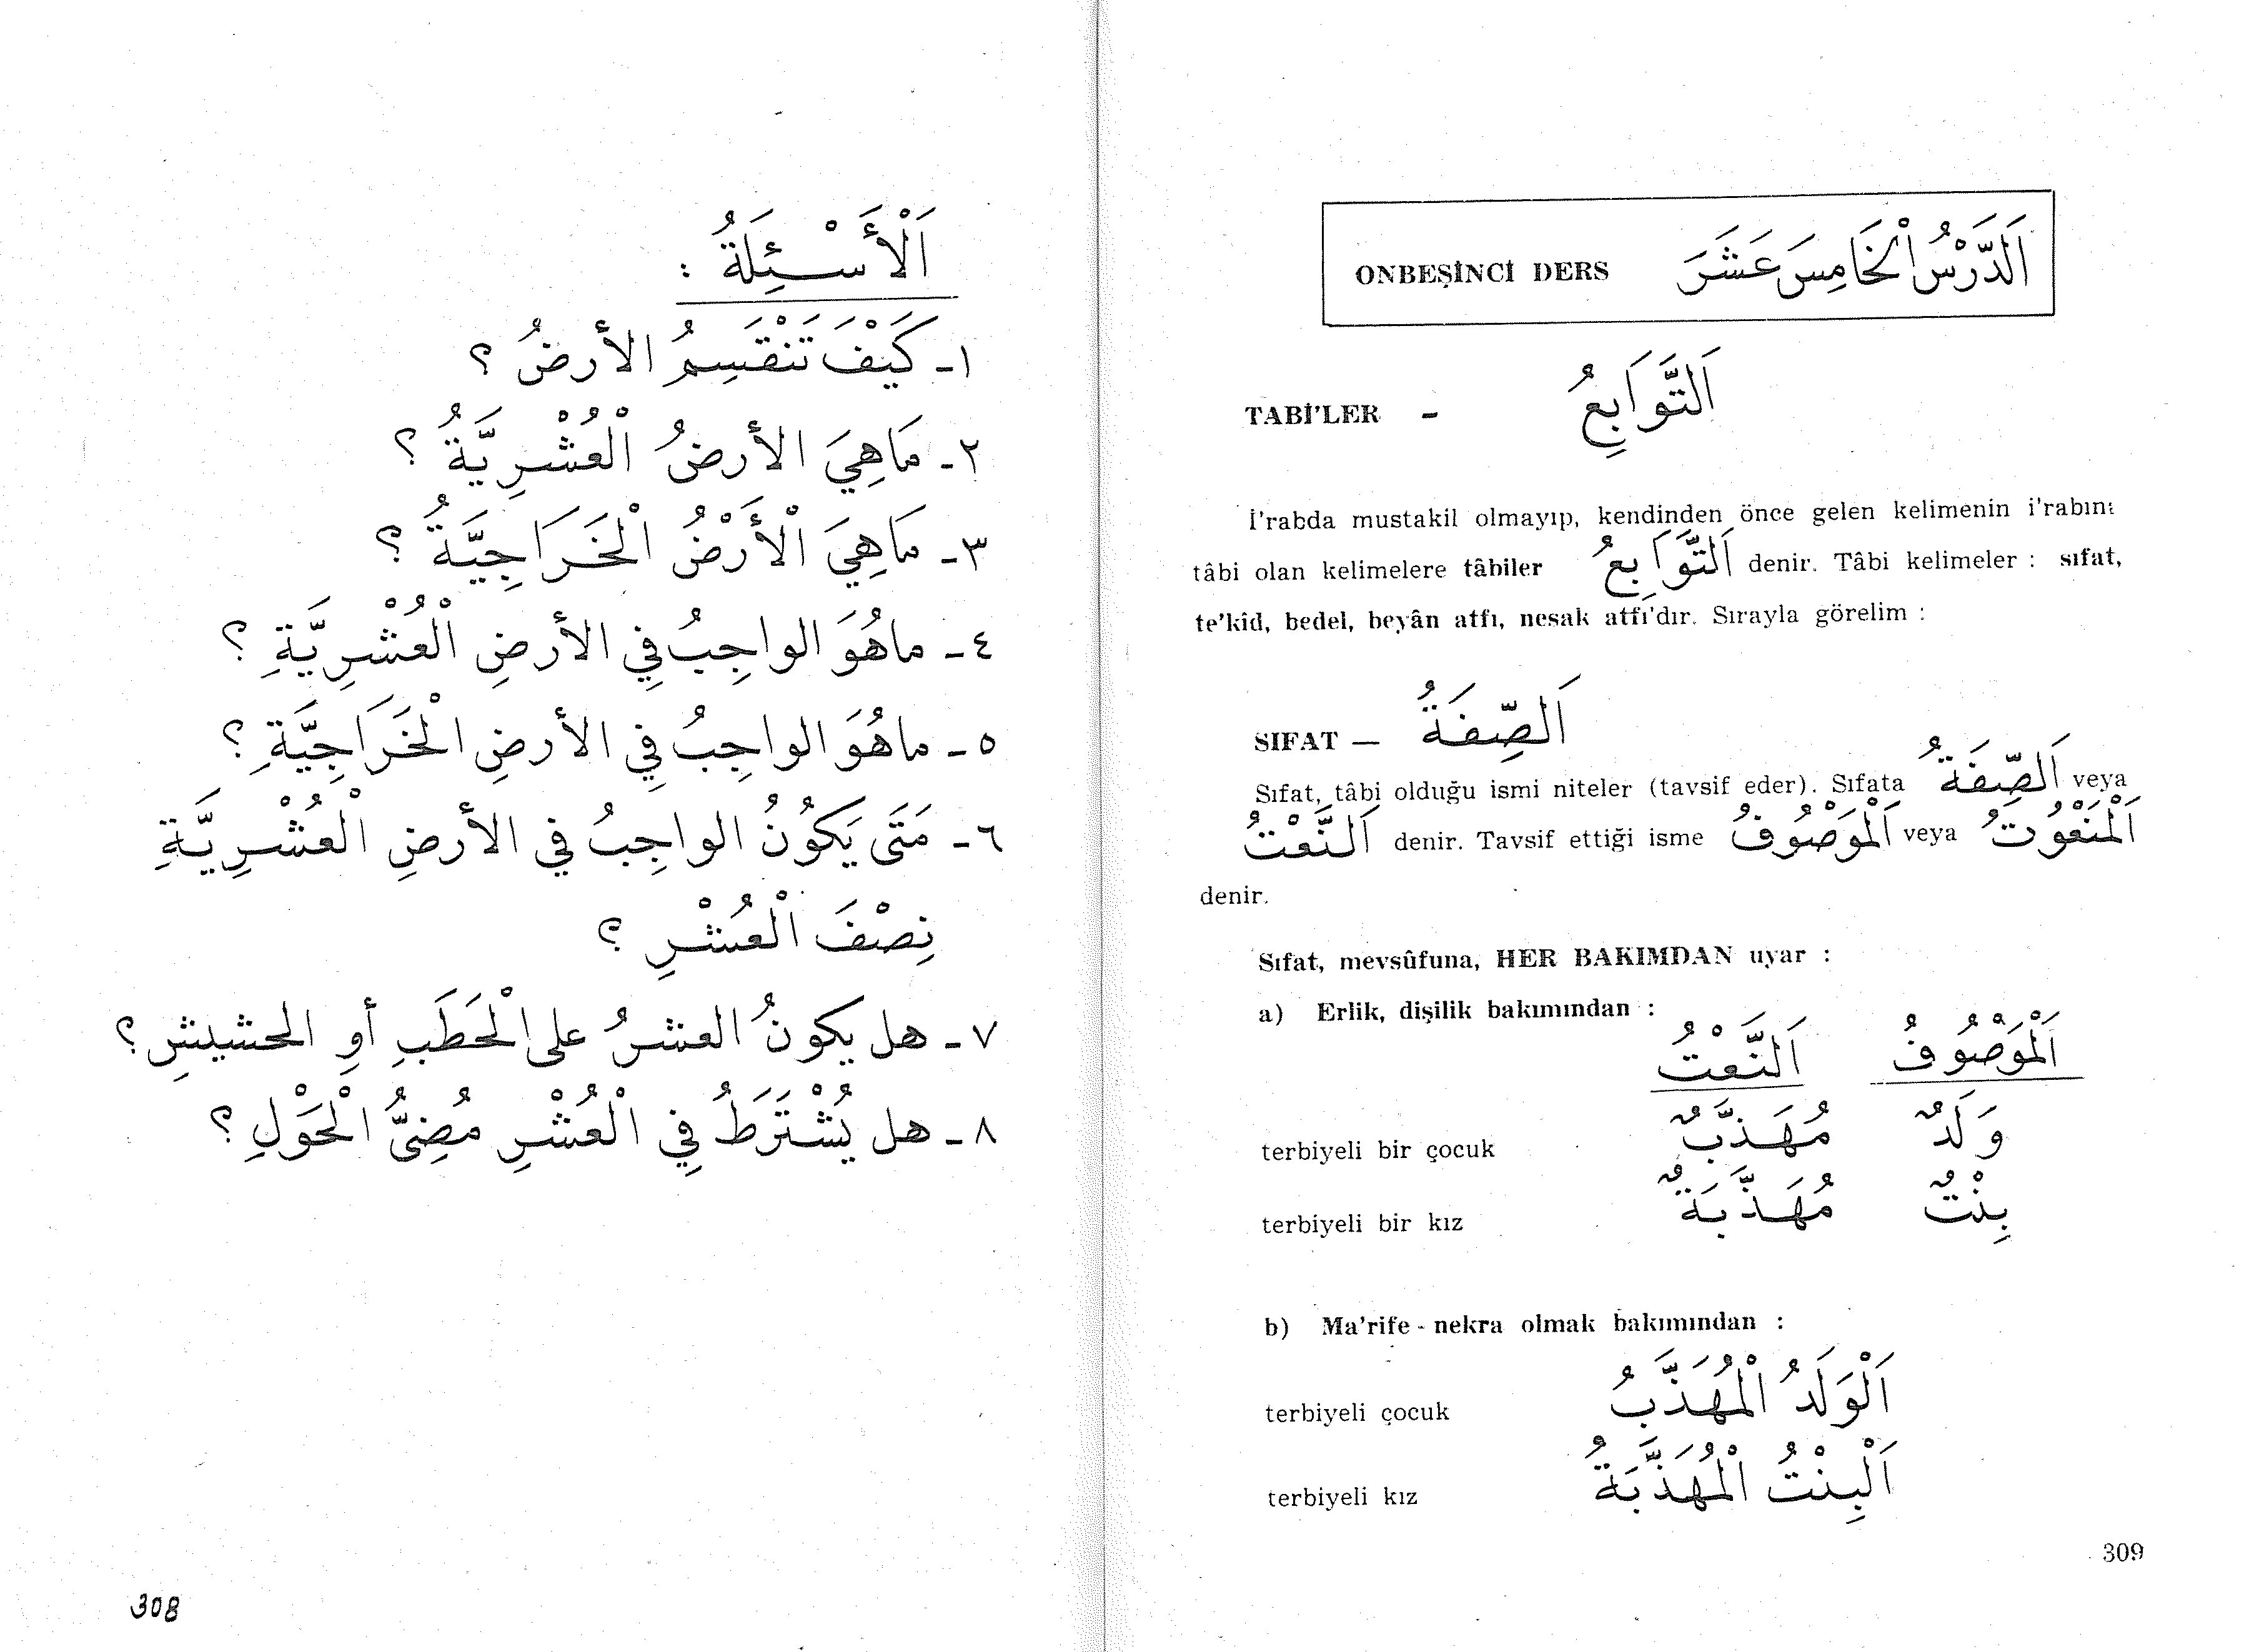 اَلْأَسْئِلَةُ :
١- كَيْفَ تَنْقَسِمُ الأرضُ ؟
٢- مَاهِيَ الأرضُ الْعُشْرِيَّةُ ؟
٣- مَاهِيَ الْأَرْضُ الْخَرَاجِيَّةُ ؟
٤- ماهُوَ الواجِبُ فِي الأرضِ الْعُشْرِيَّةِ ؟
٥- ماهُوَ الواجِبُ فِي الأرضِ الْخَرَاجِيَّةِ ؟
٦- مَتَى يَكُونُ الواجِبُ في الأرضِ الْعُشْرِيَّةِ
نِصْفَ الْعُشْرِ ؟
٧- هل يكونُ العشرُ على الْحَطَبِ أوِ الحشيشِ ؟
٨- هل يُشْتَرَطُ فِي الْعُشْرِ مُضِىُّ الْحَوْلِ ؟
308
ONBEŞİNCİ DERS اَلدَّرْسُ الْخَامِسَ عَشَرَ
TABİ'LER - اَلتَّوَابِعُ
İ'rabda mustakil olmayıp, kendinden önce gelen kelimenin i'rabını
tâbi olan kelimelere tâbiler اَلتَّوَابِعُ denir. Tâbi kelimeler : sıfat,
te'kîd, bedel, beyân atfı, nesak atfı'dır. Sırayla görelim :
SIFAT — اَلصِّفَةُ
Sıfat, tâbi olduğu ismi niteler (tavsif eder). Sıfata اَلصِّفَةُ veya
اَلنَّعْتُ denir. Tavsif ettiği isme اَلْمَوْصُوفُ veya اَلْمَنْعُوتُ
denir.
Sıfat, mevsûfuna, HER BAKIMDAN uyar :
a) Erlik, dişilik bakımından :
اَلْمَوْصُوفُ اَلنَّعْتُ
terbiyeli bir çocuk وَلَدٌ مُهَذَّبٌ
terbiyeli bir kız بِنْتٌ مُهَذَّبَةٌ
b) Ma'rife - nekra olmak bakımından :
terbiyeli çocuk اَلْوَلَدُ الْمُهَذَّبُ
terbiyeli kız اَلْبِنْتُ الْمُهَذَّبَةُ
309